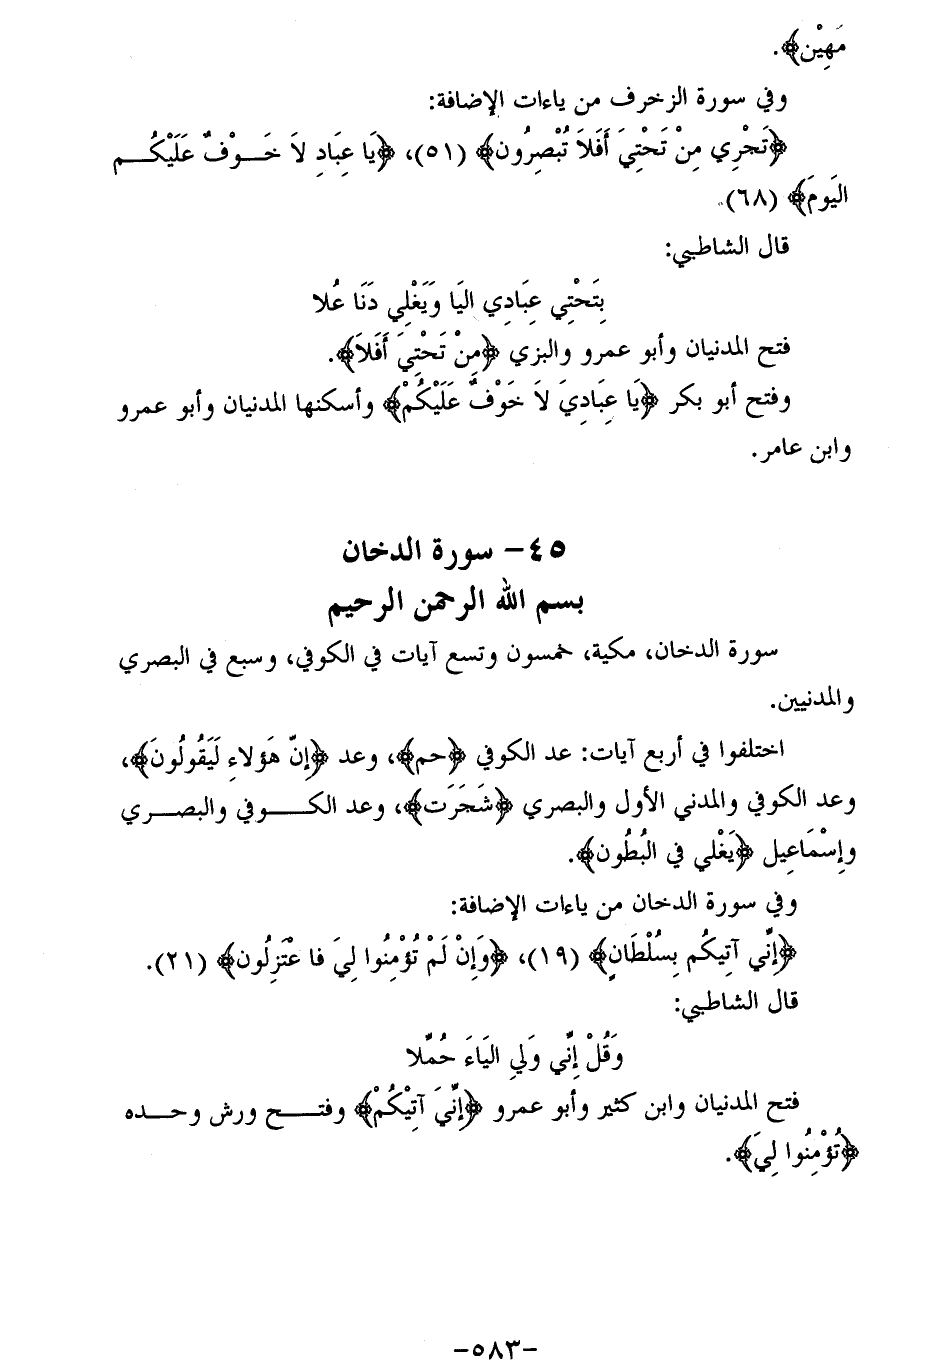 مَهِيْن﴾.
وفي سورة الزخرف من ياءات الإضافة:
﴿تَجْرِي مِنْ تَحْتِيَ أَفَلاَ تُبْصِرُون﴾ (٥١)، ﴿يَا عِبَادِ لاَ خَــوْفٌ عَلَيْكُــم
اليَومَ﴾ (٦٨).
قال الشاطبي:
بِتَحْتِي عِبَادِي اليَا وَيَغْلِي دَنَا عُلا
فتح المدنيان وأبو عمرو والبزي ﴿مِنْ تَحْتِيَ أَفَلاَ﴾.
وفتح أبو بكر ﴿يَا عِبَادِيَ لاَ خَوْفٌ عَلَيْكُمْ﴾ وأسكنها المدنيان وأبو عمرو
وابن عامر.
٤٥- سورة الدخان
بسم الله الرحمن الرحيم
سورة الدخان، مكية، خمسون وتسع آيات في الكوفي، وسبع في البصري
والمدنيين.
اختلفوا في أربع آيات: عد الكوفي ﴿حم﴾، وعد ﴿إِنّ هَؤلاءِ لَيَقُولُونَ﴾،
وعد الكوفي والمدني الأول والبصري ﴿شَجَرَت﴾، وعد الكــوفي والبصــري
وإِسْمَاعِيل ﴿يَغْلي في البُطُون﴾.
وفي سورة الدخان من ياءات الإضافة:
﴿إِنِّي آتِيكُم بِسُلْطَانٍ﴾ (١٩)، ﴿وَإِنْ لَمْ تُؤْمِنُوا لِيَ فا عْتَزِلُون﴾ (٢١).
قال الشاطبي:
وَقُلْ إِنِّي وَلي اليَاءَ حُمِّلا
فتح المدنيان وابن كثير وأبو عمرو ﴿إِنِّيَ آتِيْكُمْ﴾ وفتــح ورش وحــده
﴿تُؤْمِنُوا لِيَ﴾.
-٥٨٣-